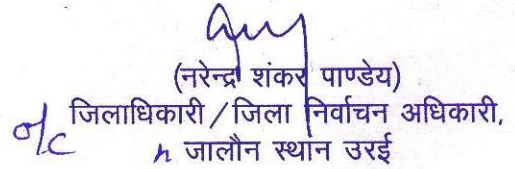 (नरेन्द्र शंकर पाण्डेय)
o/c जिलाधिकारी / जिला निर्वाचन अधिकारी,
जालौन स्थान उरई